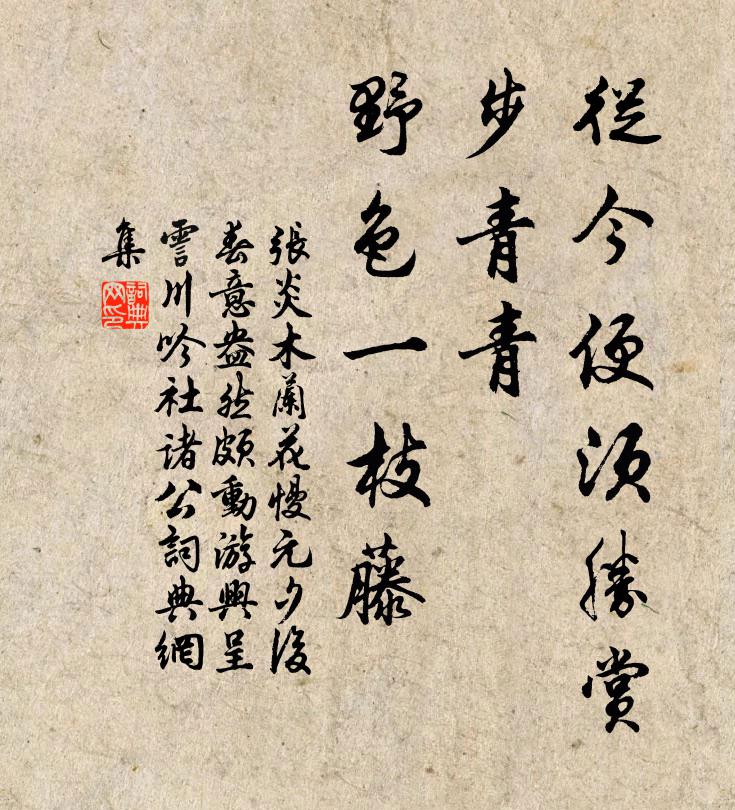 從今便須勝賞
步青青
野色一枝藤
張炎木蘭花慢元夕後
春意盎然頗動游興呈
霅川吟社諸公詞典網
集
詞典
网印